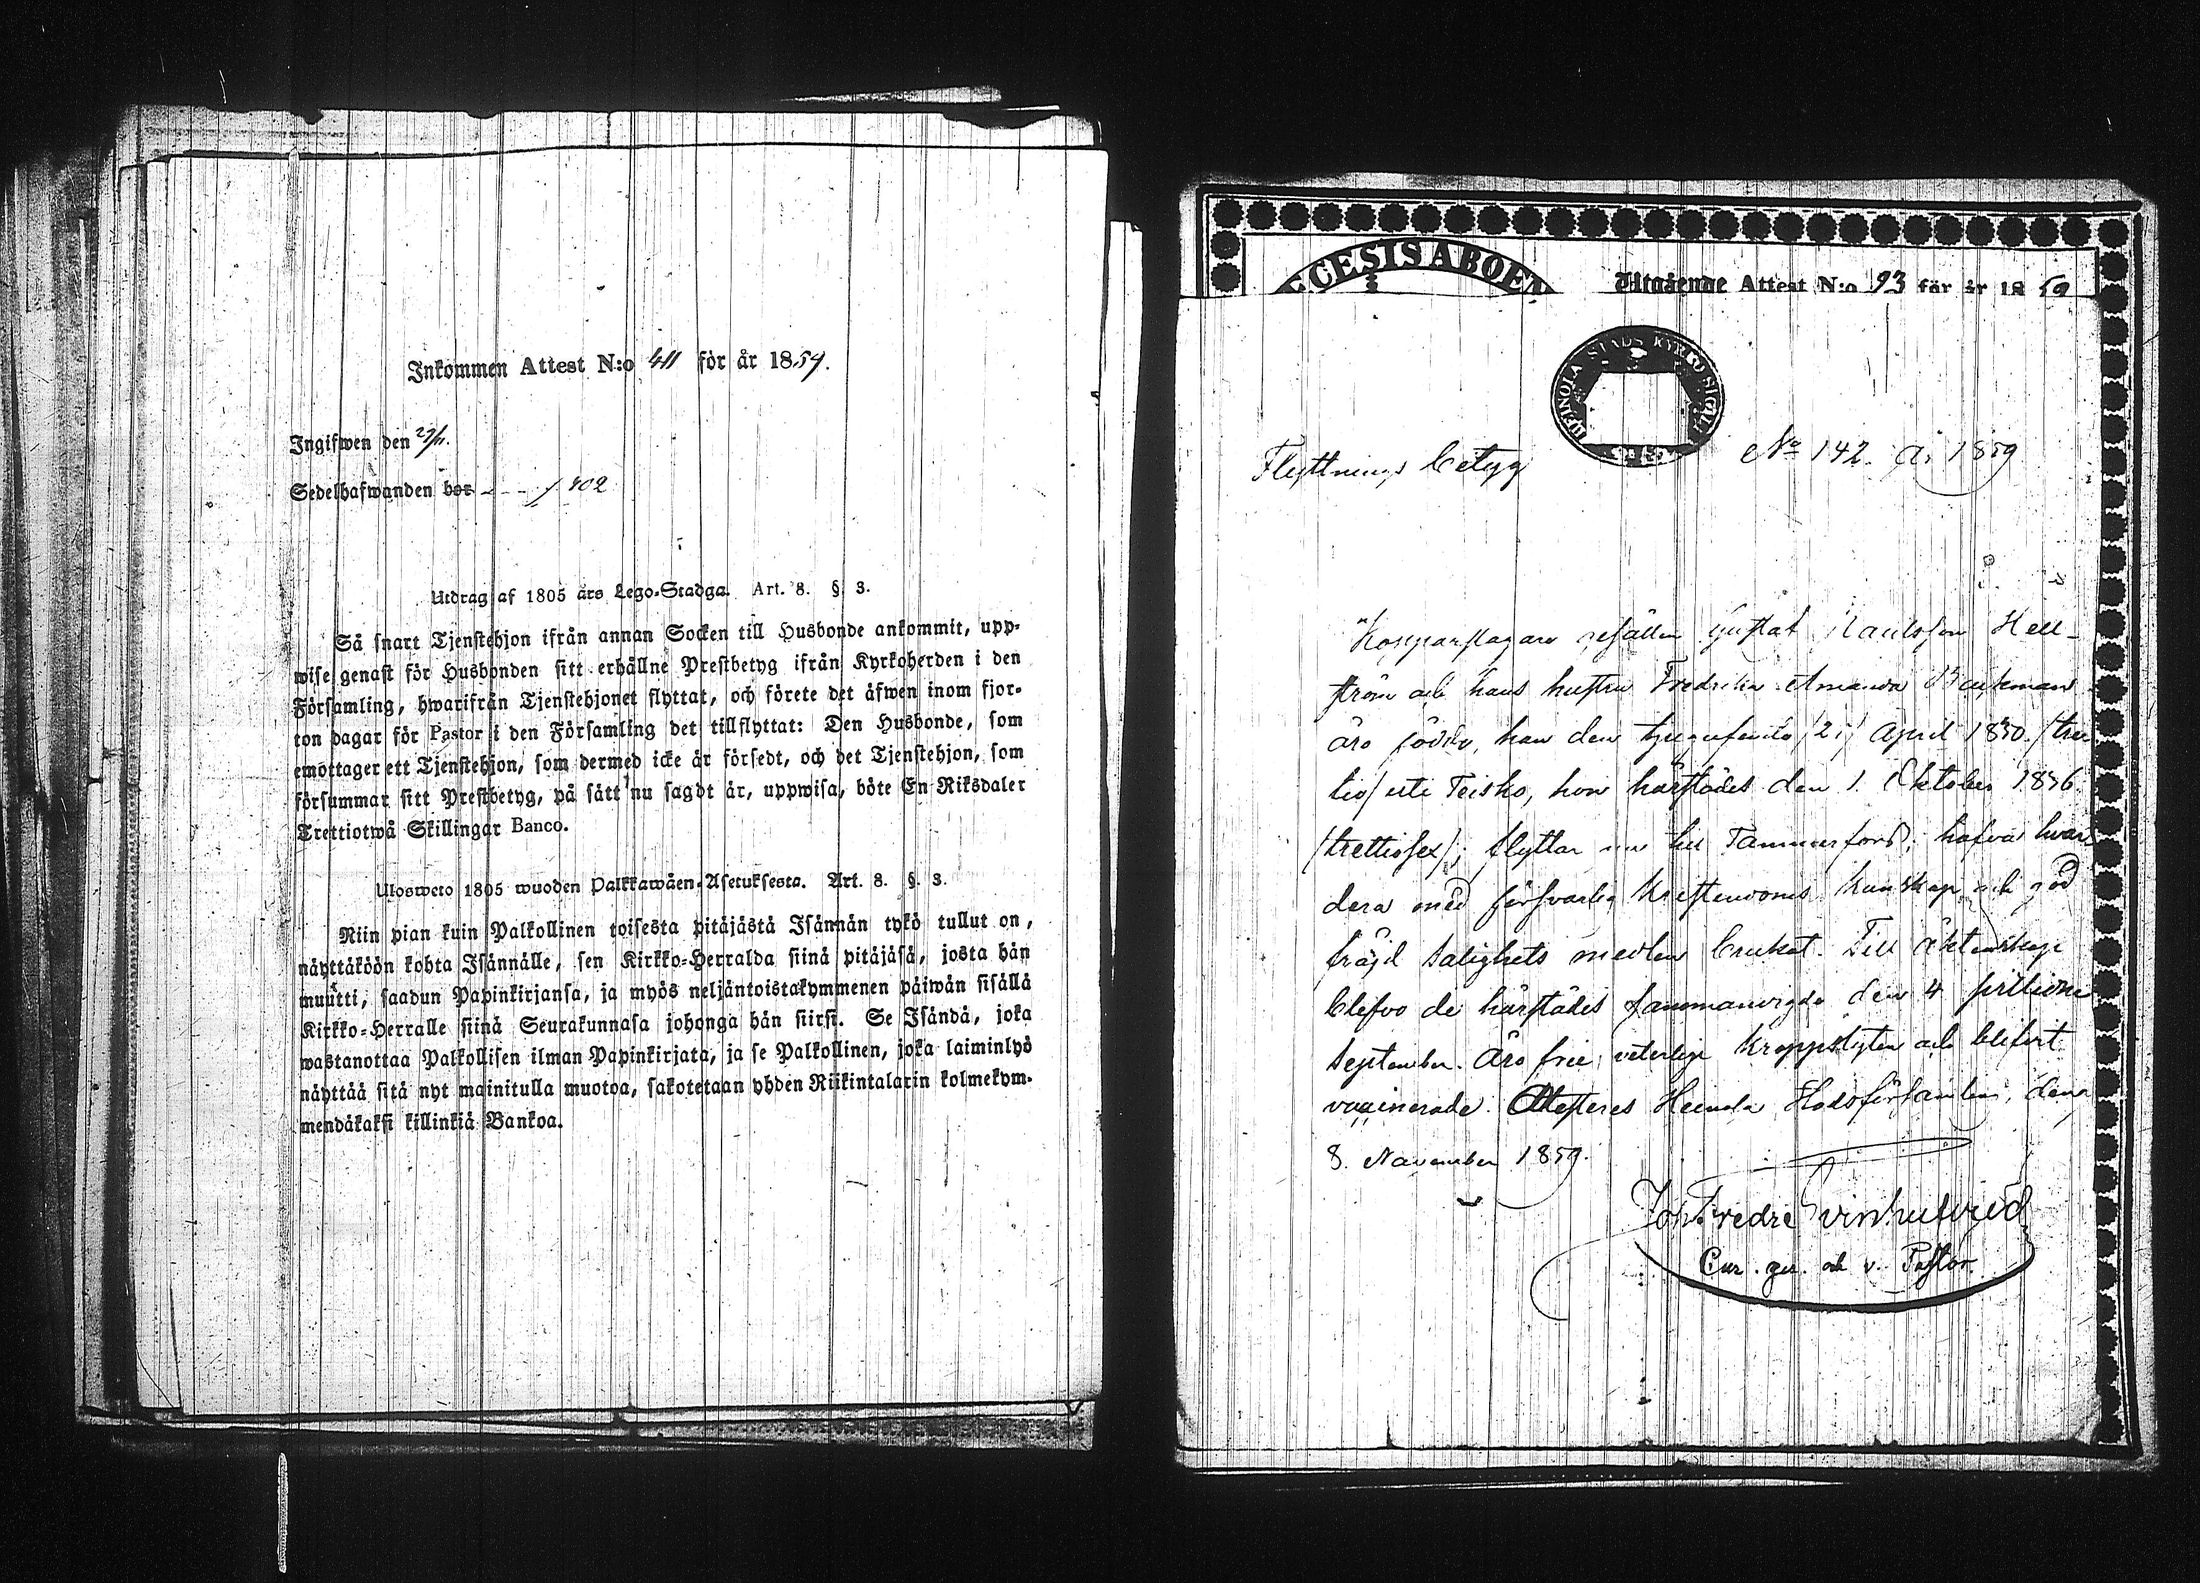 Inkommen Attest N:o 411 för år 1859.
Ingifwen den 29/11.
Sedelhafwanden bor - - - 402
Utdrag af 1805 års Lego-Stadga. Art. 8. § 3.
Så snart Tjenstehjon ifrån annan Socken till Husbonde ankommit, upp-
wise genast för Husbonden sitt erhållne Prestbetyg ifrån Kyrkoherden i den
Församling, hwarifrån Tjenstehjonet flyttat, och förete det äfwen inom fjor-
ton dagar för Pastor i den Församling det tillflyttat: Den Husbonde, som
emottager ett Tjenstehjon, som dermed icke är försedt, och det Tjenstehjon, som
försummar sitt Prestbetyg, på sätt nu sagdt är, uppwisa, böte En Riksdaler
Trettiotwå Skillingar Banco.
Ulosweto 1805 wuoden Palkkawäen-Asetuksesta. Art. 8. §. 3.
Niin pian kuin Palkollinen toisesta pitäjästä Isännän tykö tullut on,
näyttäköön kohta Isännälle, sen Kirkko-Herralda siinä pitäjäsä, josta hän
muutti, saadun Papinkirjansa, ja myös neljäntoistakymmenen päiwän sisällä
Kirkko-Herralle siinä Seurakunnasa johonga hän siirsi. Se Isändä, joka
wastanottaa Palkollisen ilman Papinkirjata, ja se Palkollinen, joka laiminlyö
näyttää sitä nyt mainitulla muotoa, sakotetaan yhden Riikintalarin kolmekym-
mendäkaksi killinkiä Bankoa.
GESIS ABOEN
Utgående Attest N:o 93 för år 1859
HEINOLA STADS KYRKO SIGILL
Flyttnings betyg No 142. år 1859
Kopparslagare gesällen Gustaf Karlsson Hell-
ström och hans hustru Fredrika Amanda Backman
äro födde, han den tjuguförsta /21/ April 1830. /tret
tio/ uti Teisko, hon härstädes den 1. Oktober 1836.
/trettiosex/; flyttar nu till Tammerfors; hafva hvar
dera med försvarlig kristendoms kunskap och god
fräjd salighets medlen brukat. Till äktenskap
blefvo de härstädes sammanvigde den 4 sistlidne
September. Äro frie veterlige kroppslyten och blifvit
vaccinerade. Attesteras Heinola Stadsförsamling, den
8. November 1859.
Joh Fredr Svinhufvud
Cur. ger. och v. Pastor